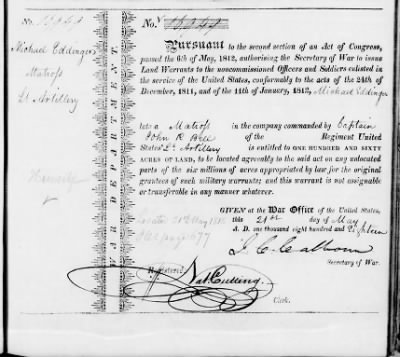 No.
Michael Eddinger
Matross
Lt Artillery
WAR DEPARTMENT.
No.
Pursuant to the second section of an Act of Congress,
passed the 6th of May, 1812, authorising the Secretary of War to issue
Land Warrants to the noncommissioned Officers and Soldiers enlisted in
the service of the United States, conformably to the acts of the 24th of
December, 1811, and of the 11th of January, 1812, Michael Eddinger
late a Matross in the company commanded by Captain
John R of the Regiment United
States Lt Artillery is entitled to ONE HUNDRED AND SIXTY
ACRES OF LAND, to be located agreeably to the said act on any unlocated
parts of the six millions of acres appropriated by law for the original
grantees of such military warrants; and this warrant is not assignable
or transferable in any manner whatever.
GIVEN at the War Office of the United States,
this 21st day of May
A. D. one thousand eight hundred and Eighteen
J. C. Calhoun
Secretary of War.
Located 21st May 1818
page 677
Registered
Nat. Cutting
Clerk.